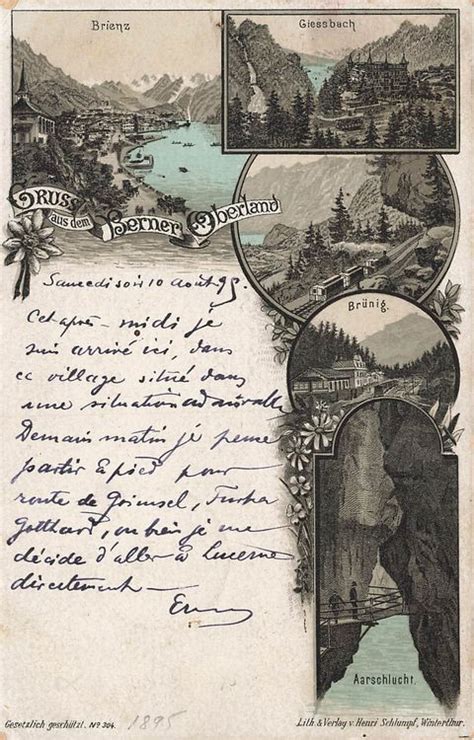 Brienz
Giessbach
Gruss
aus dem
Berner Oberland
Brünig.
Samedi soir 10 août 95.
Cet après-midi je
suis arrivé ici, dans
ce village situé dans
une situation admirable
Demain matin je pense
partir à pied pour
route de Grimsel, Furka
Gotthard, ou bien je me
décide d'aller à Lucerne
directement
Aarschlucht.
Gesetzlich geschützt. No 304.
1895
Lith. & Verlag v. Henri Schlumpf, Winterthur.